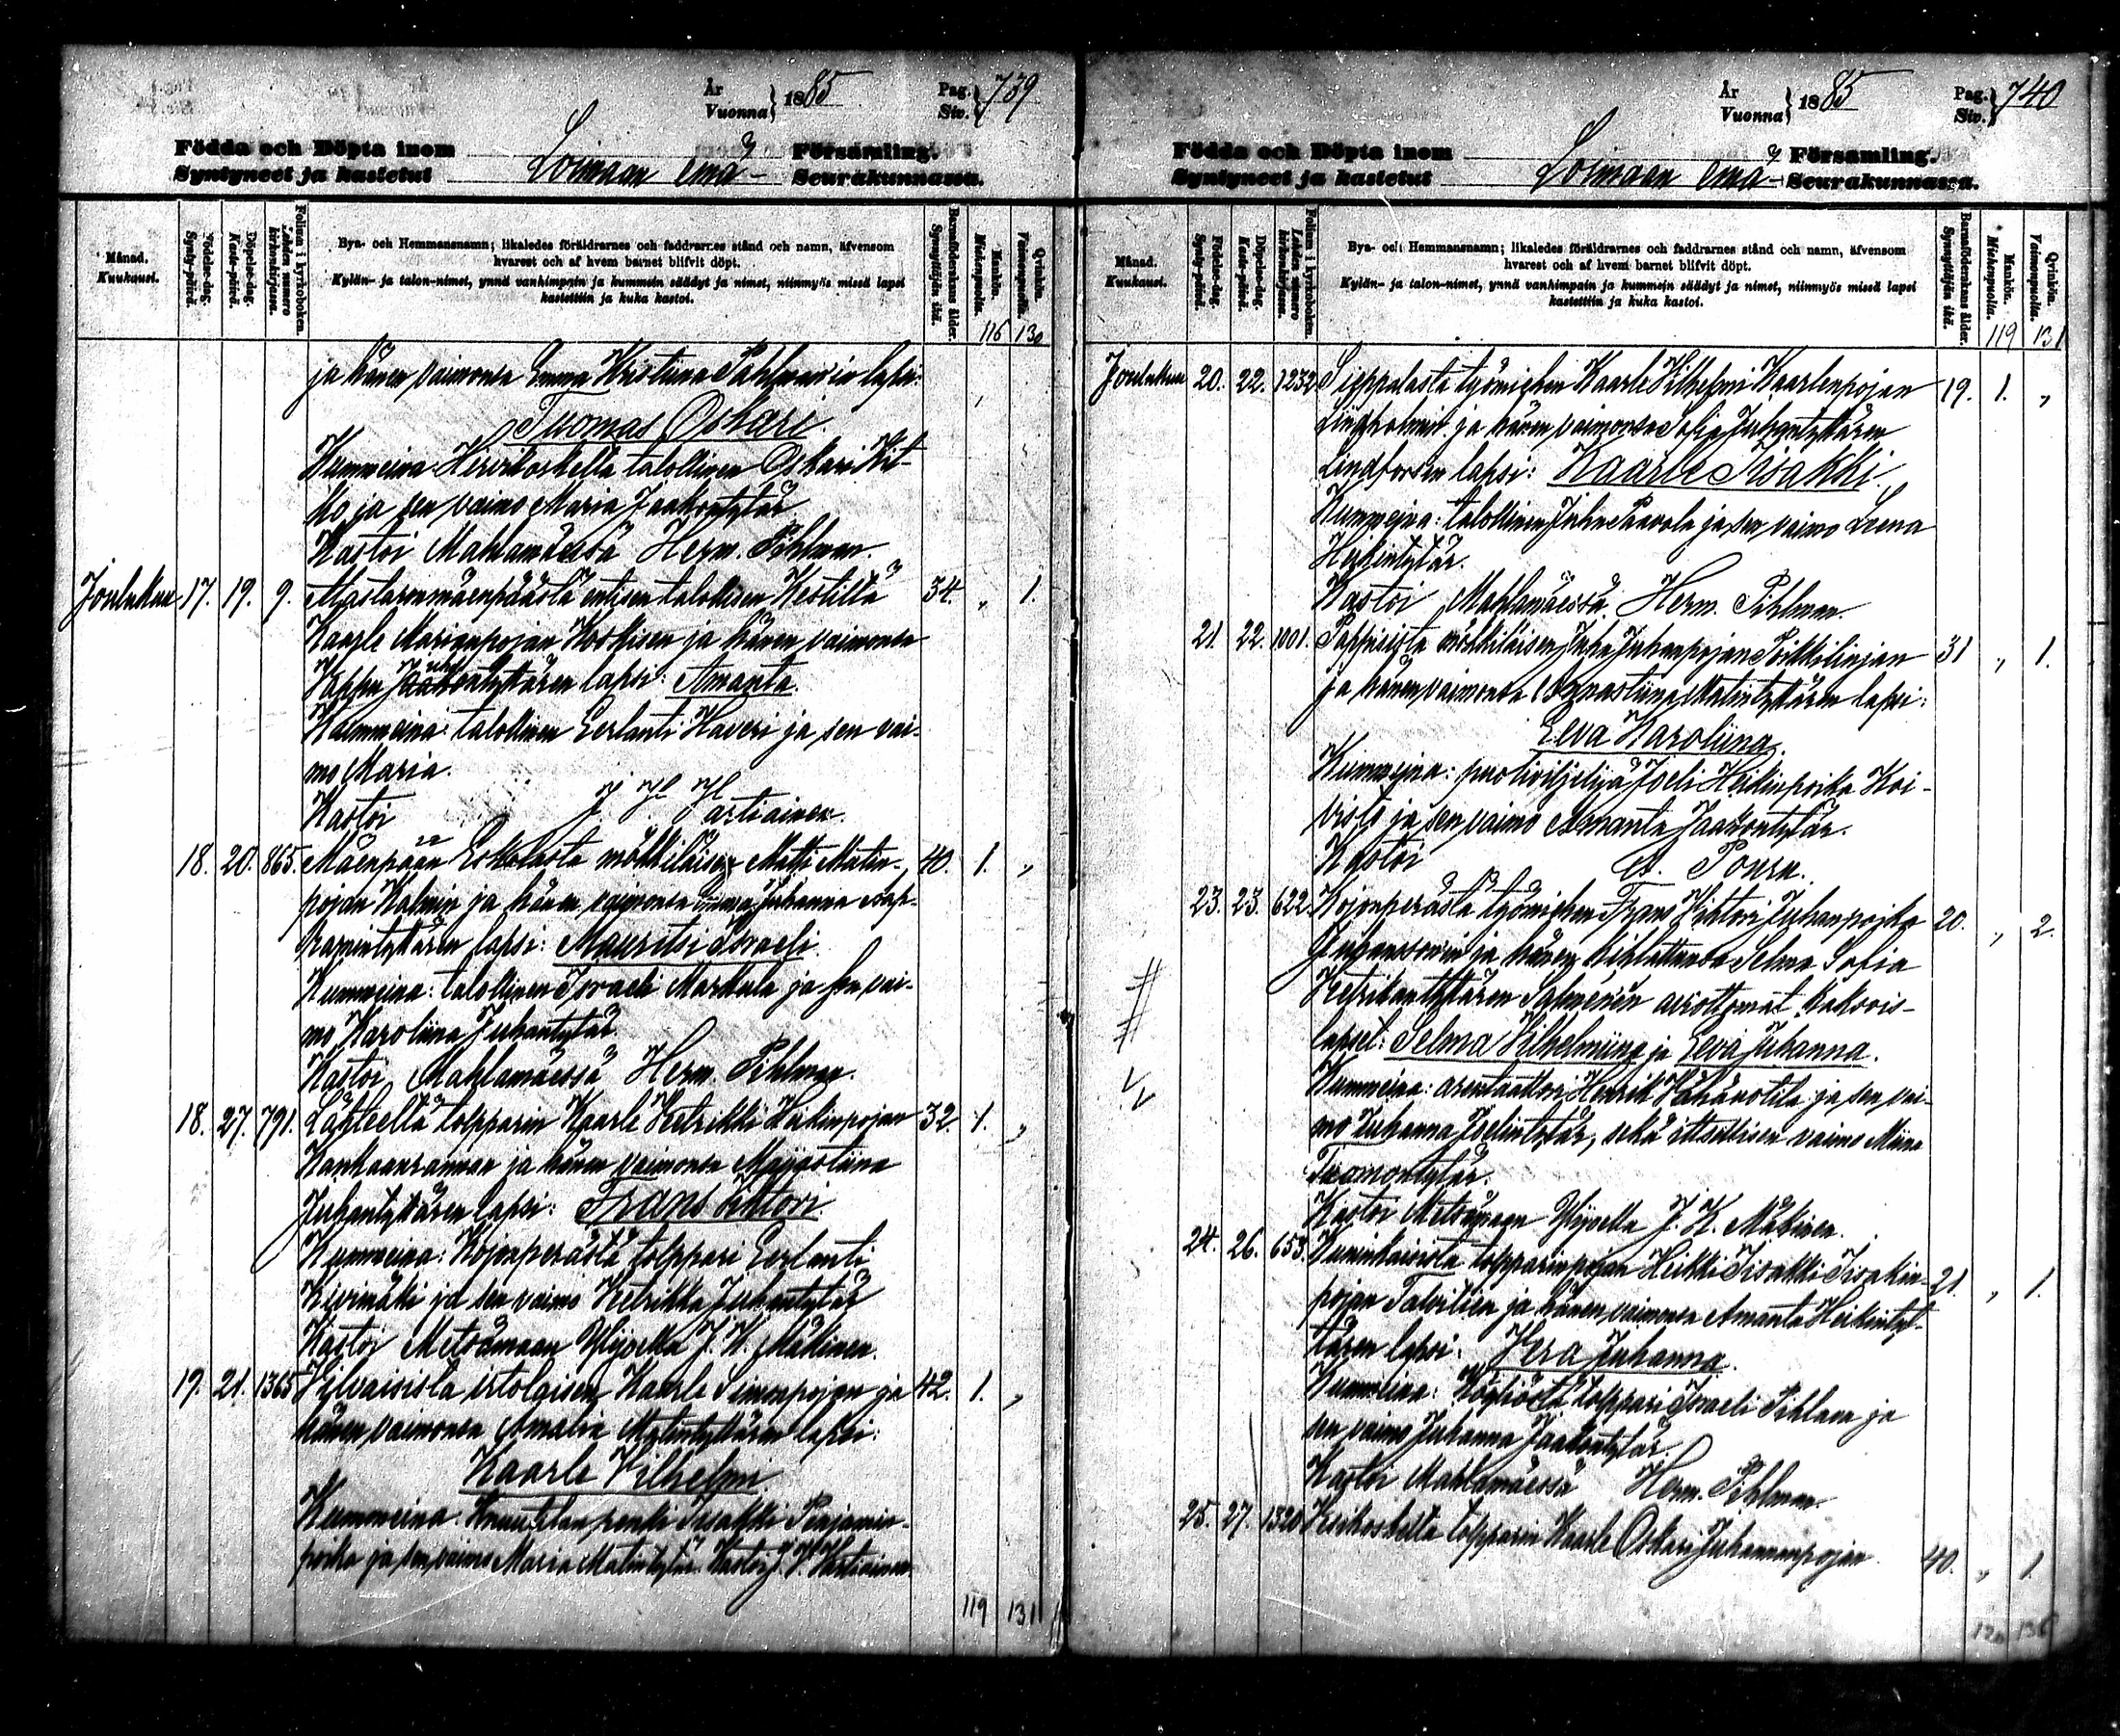 År
Vuonna } 1885
Pag.
Siv. } 739
Födda och Döpta inom
Syntyneet ja kastetut
Loimaan emä-
Församling.
Seurakunnassa.
Månad.
Kuukausi.
Födelse-dag.
Synty-päivä.
Döpelse-dag.
Kaste-päivä.
Folium i kyrkoboken.
Lehden numero kirkonkirjassa.
Bya- och Hemmansnamn; likaledes föräldrarnes och faddrarnes stånd och namn, äfvensom
hvarest och af hvem barnet blifvit döpt.
Kylän- ja talon-nimet, ynnä vanhimpain ja kummein säädyt ja nimet, niinmyös missä lapsi
kastettiin ja kuka kastoi.
Barnaföderskans ålder.
Synnyttäjän ikä.
Mankön.
Miehenpuolta.
Qvinkön.
Vaimonpuolta.
116 130
ja hänen vaimonsa Emma Kristiina Pahlman'in lapsi:
Tuomas Oskari.
Kummeina: Hirvikoskelta talollinen Oskari
ko ja sen vaimo Maria Jaakontytär
Kastoi Mahlamäessä Herm. Pihlman.
Joulukuu 17. 19. 9. entisen talollisen Kestilä 34. „ 1.
Kaarle Marianpojan Koskisen ja hänen vaimonsa
lapsi: Amanta.
Kummeina: talollinen Eerlanti Haveri ja sen vai-
mo Maria.
Kastoi J. H. Hartiainen.
18. 20. 865. Mäenpään Eskolasta mökkiläisen Matti Matin- 40. 1. „
pojan Kalmin ja hänen vaimonsa Juhanna
lapsi: Mauritsi Israeli.
Kummeina: talollinen Israeli Markula ja sen vai-
mo Karoliina Juhantytär.
Kastoi Mahlamäessä Herm. Pihlman.
18. 27. 791. torpparin Kaarle Ketrikki Heikinpojan 32. 1. „
Kankaanrannan ja hänen vaimonsa Majastiina
Juhantyttären lapsi: Frans Vihtori
Kummeina: Kojonperästä torppari Eerlanti
Kivimäki ja sen vaimo Ketrikka Juhantytär
Kastoi Metsämaan Ylijoella J. K. Mäkinen.
19. 21. 1365 Vilvaisista irtolaisen Kaarle Simonpojan ja 42. 1. „
hänen vaimonsa Amalia Matintyttären lapsi:
Kaarle Vilhelmi
Kummeina: Iisakki Penjamin-
poika ja sen vaimo Maria Matintytär. Kastoi J. H. Hartiainen
119 131
År
Vuonna } 1885
Pag.
Siv. } 740
Födda och Döpta inom
Syntyneet ja kastetut
Loimaan emä-
Församling.
Seurakunnassa.
Månad.
Kuukausi.
Födelse-dag.
Synty-päivä.
Döpelse-dag.
Kaste-päivä.
Folium i kyrkoboken.
Lehden numero kirkonkirjassa.
Bya- och Hemmansnamn; likaledes föräldrarnes och faddrarnes stånd och namn, äfvensom
hvarest och af hvem barnet blifvit döpt.
Kylän- ja talon-nimet, ynnä vanhimpain ja kummein säädyt ja nimet, niinmyös missä lapsi
kastettiin ja kuka kastoi.
Barnaföderskans ålder.
Synnyttäjän ikä.
Mankön.
Miehenpuolta.
Qvinkön.
Vaimonpuolta.
119 131
Joulukuu 20. 22. 1232 työmiehen Kaarle Vilhelmi Kaarlenpojan 19. 1. „
Lindholmin ja hänen vaimonsa Sofia Juhantyttären
Lindforsin lapsi: Kaarle Iisakki.
Kummeina: talollinen Juha Paavola ja sen vaimo Leena
Heikintytär.
Kastoi Mahlamäessä Herm. Pihlman.
21. 22. 1001. Pappisista mökkiläisen Juha Juhanpojan Poikkilinjan 31 „ 1.
ja hänen vaimonsa Annastiina Matintyttären lapsi:
Eeva Karoliina.
Kummeina: puoliviljeliä Joeli Heikinpoika Koi-
visto ja sen vaimo Amanta Jaakontytär.
Kastoi A. Poura.
23. 23. 622. Kojonperästä työmiehen Frans Vihtori Juhanpoika 20. „ 2.
Juhanssonin ja hänen kihlattunsa Selma Sofia
Ketrikantyttären Salmenin aviottomat kaksois-
lapset: Selma Vilhelmiina ja Eeva Juhanna.
Kummeina: arentaattori Henrik Vähänotila ja sen vai-
mo Juhanna Joelintytär, sekä itsellisen vaimo Miina
Tuomontytär.
Kastoi Metsämaan Ylijoella J. K. Mäkinen.
24. 26. 653. Kuninkaisista torpparinpojan Heikki Iisakki Iisakin- 21. „ 1.
pojan Talvitien ja hänen vaimonsa Amanta Heikintyt-
tären lapsi: Vera Juhanna.
Kummeina: torppari Israeli Pihlava ja
sen vaimo Juhanna Jaakontytär.
Kastoi Mahlamäessä Herm. Pihlman.
25. 27. 1320 torpparin Kaarle Oskari Juhananpojan 40. „ 1.